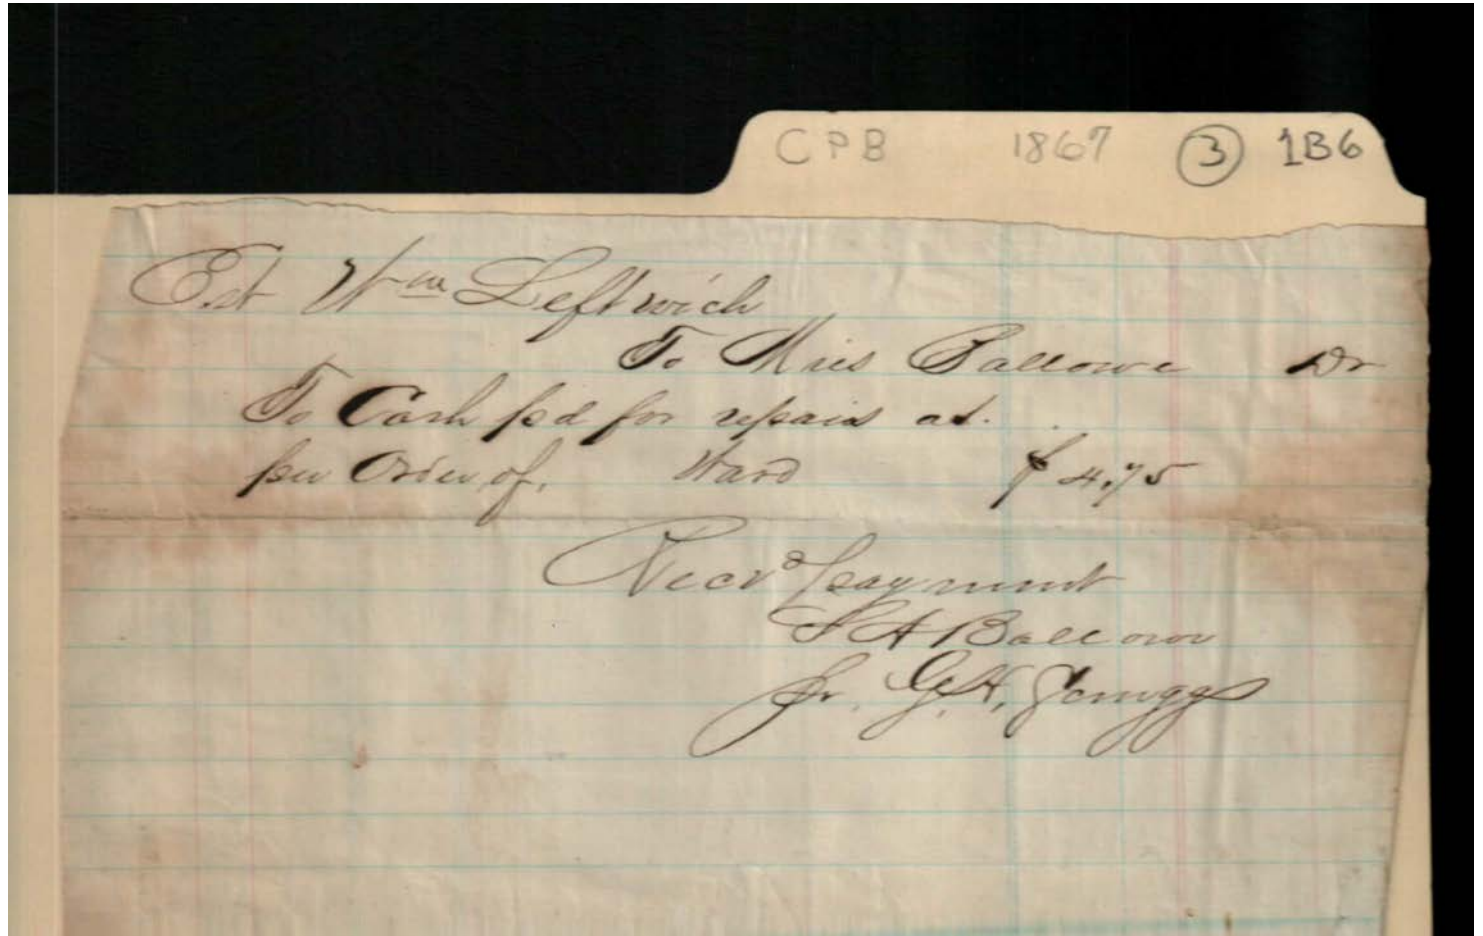 CPB 1867 3 1B6
Est Wm Leftwich
To Miss Ballowe Dr
To Cash pd for repairs at.
per Order of. Ward $4.75
Recd payment
S A Ballowe
pr. G. H. Scruggs